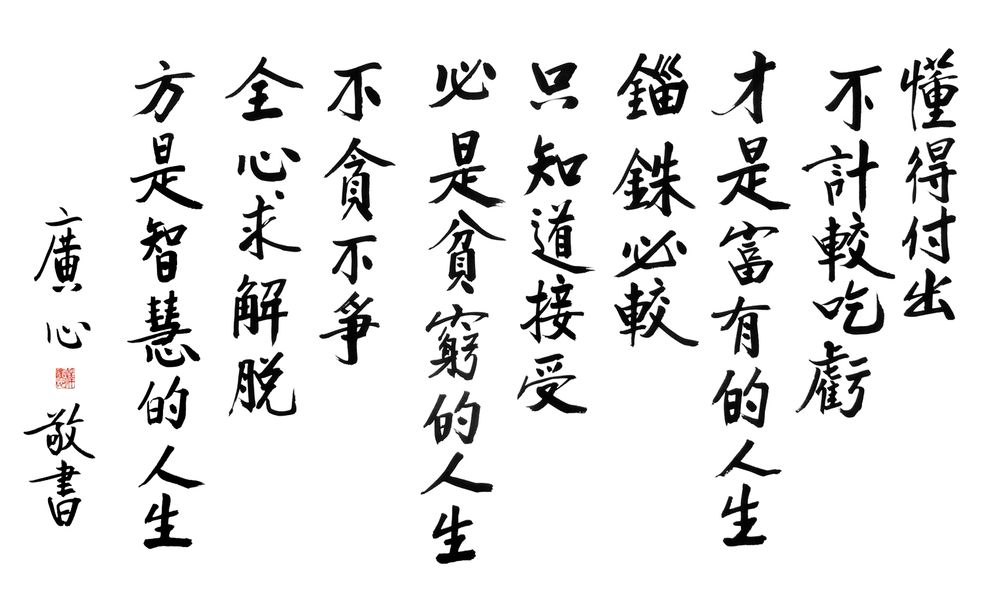 懂得付出
不計較吃虧
才是富有的人生
錙銖必較
只知道接受
必是貧窮的人生
不貪不爭
全心求解脫
方是智慧的人生
廣心
敬書